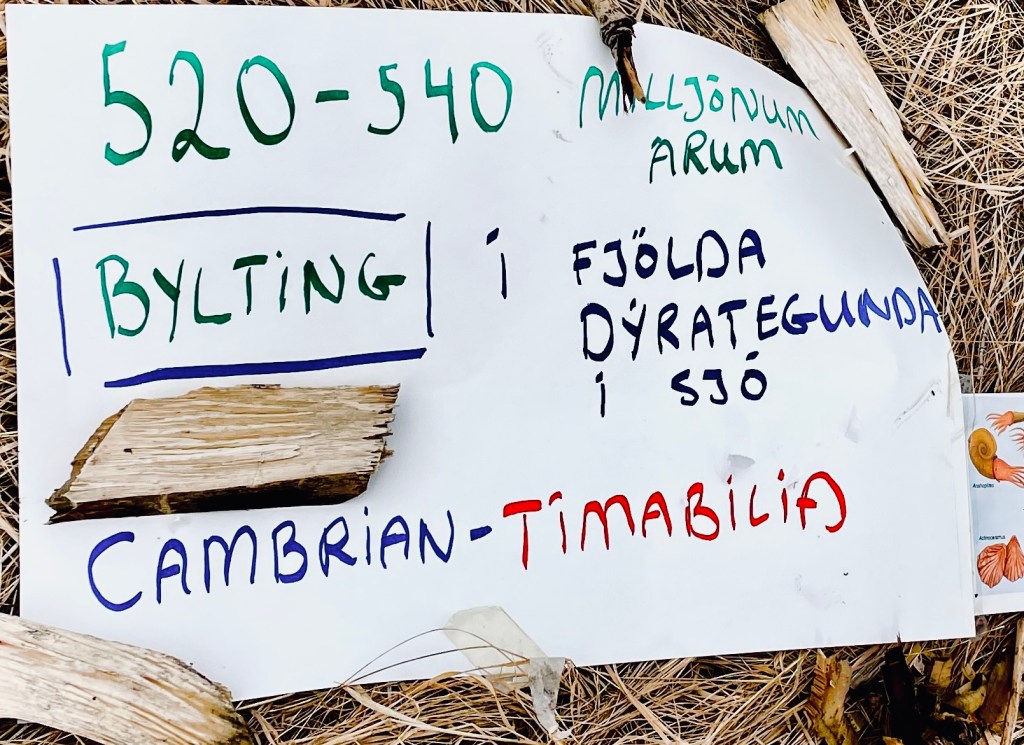 520-540 MILLJÓNUM
ÁRUM
BYLTING Í FJÖLDA
DÝRATEGUNDA
Í SJÓ
CAMBRIAN-TÍMABILIÐ